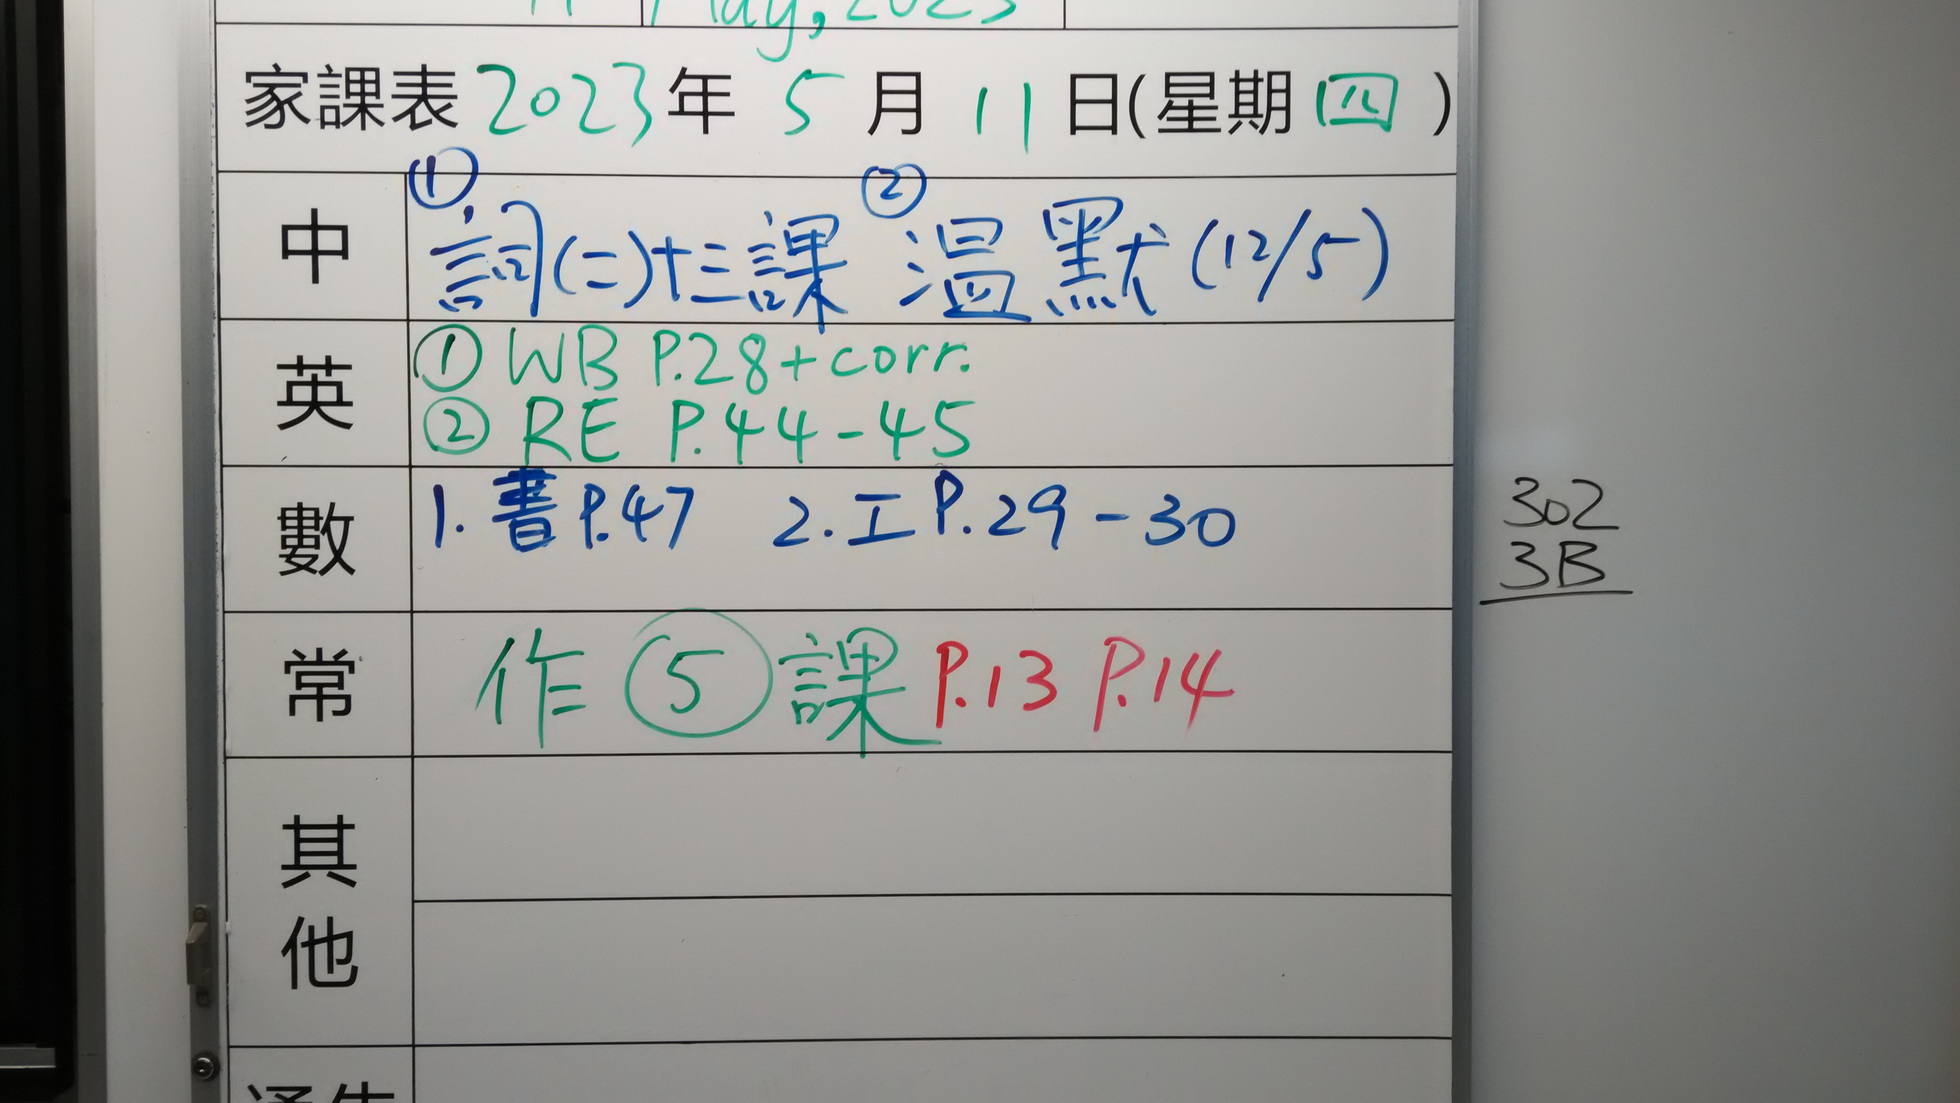 11 May, 2023
家課表 2023年 5月 11日(星期四)
中
① 詞(二)十三課 ② 温默(12/5)
英
① WB P.28+corr.
② RE P.44-45
數
1. 書P.47 2. 工P.29-30
常
作⑤課 P.13 P.14
其他
通告
302
3B